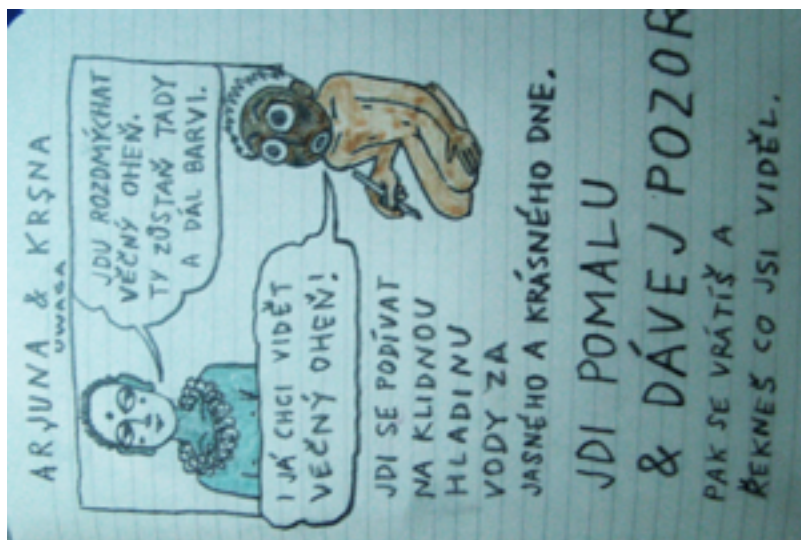 ARJUNA & KRSNA
UWAGA
JDU ROZDMÝCHAT
VĚČNÝ OHEŇ.
TY ZŮSTAŇ TADY
A DÁL BARVI.
I JÁ CHCI VIDĚT
VĚČNÝ OHEŇ!
JDI SE PODÍVAT
NA KLIDNOU
HLADINU
VODY ZA
JASNÉHO A KRÁSNÉHO DNE.
JDI POMALU
& DÁVEJ POZOR
PAK SE VRÁTÍŠ A
ŘEKNEŠ CO JSI VIDĚL.